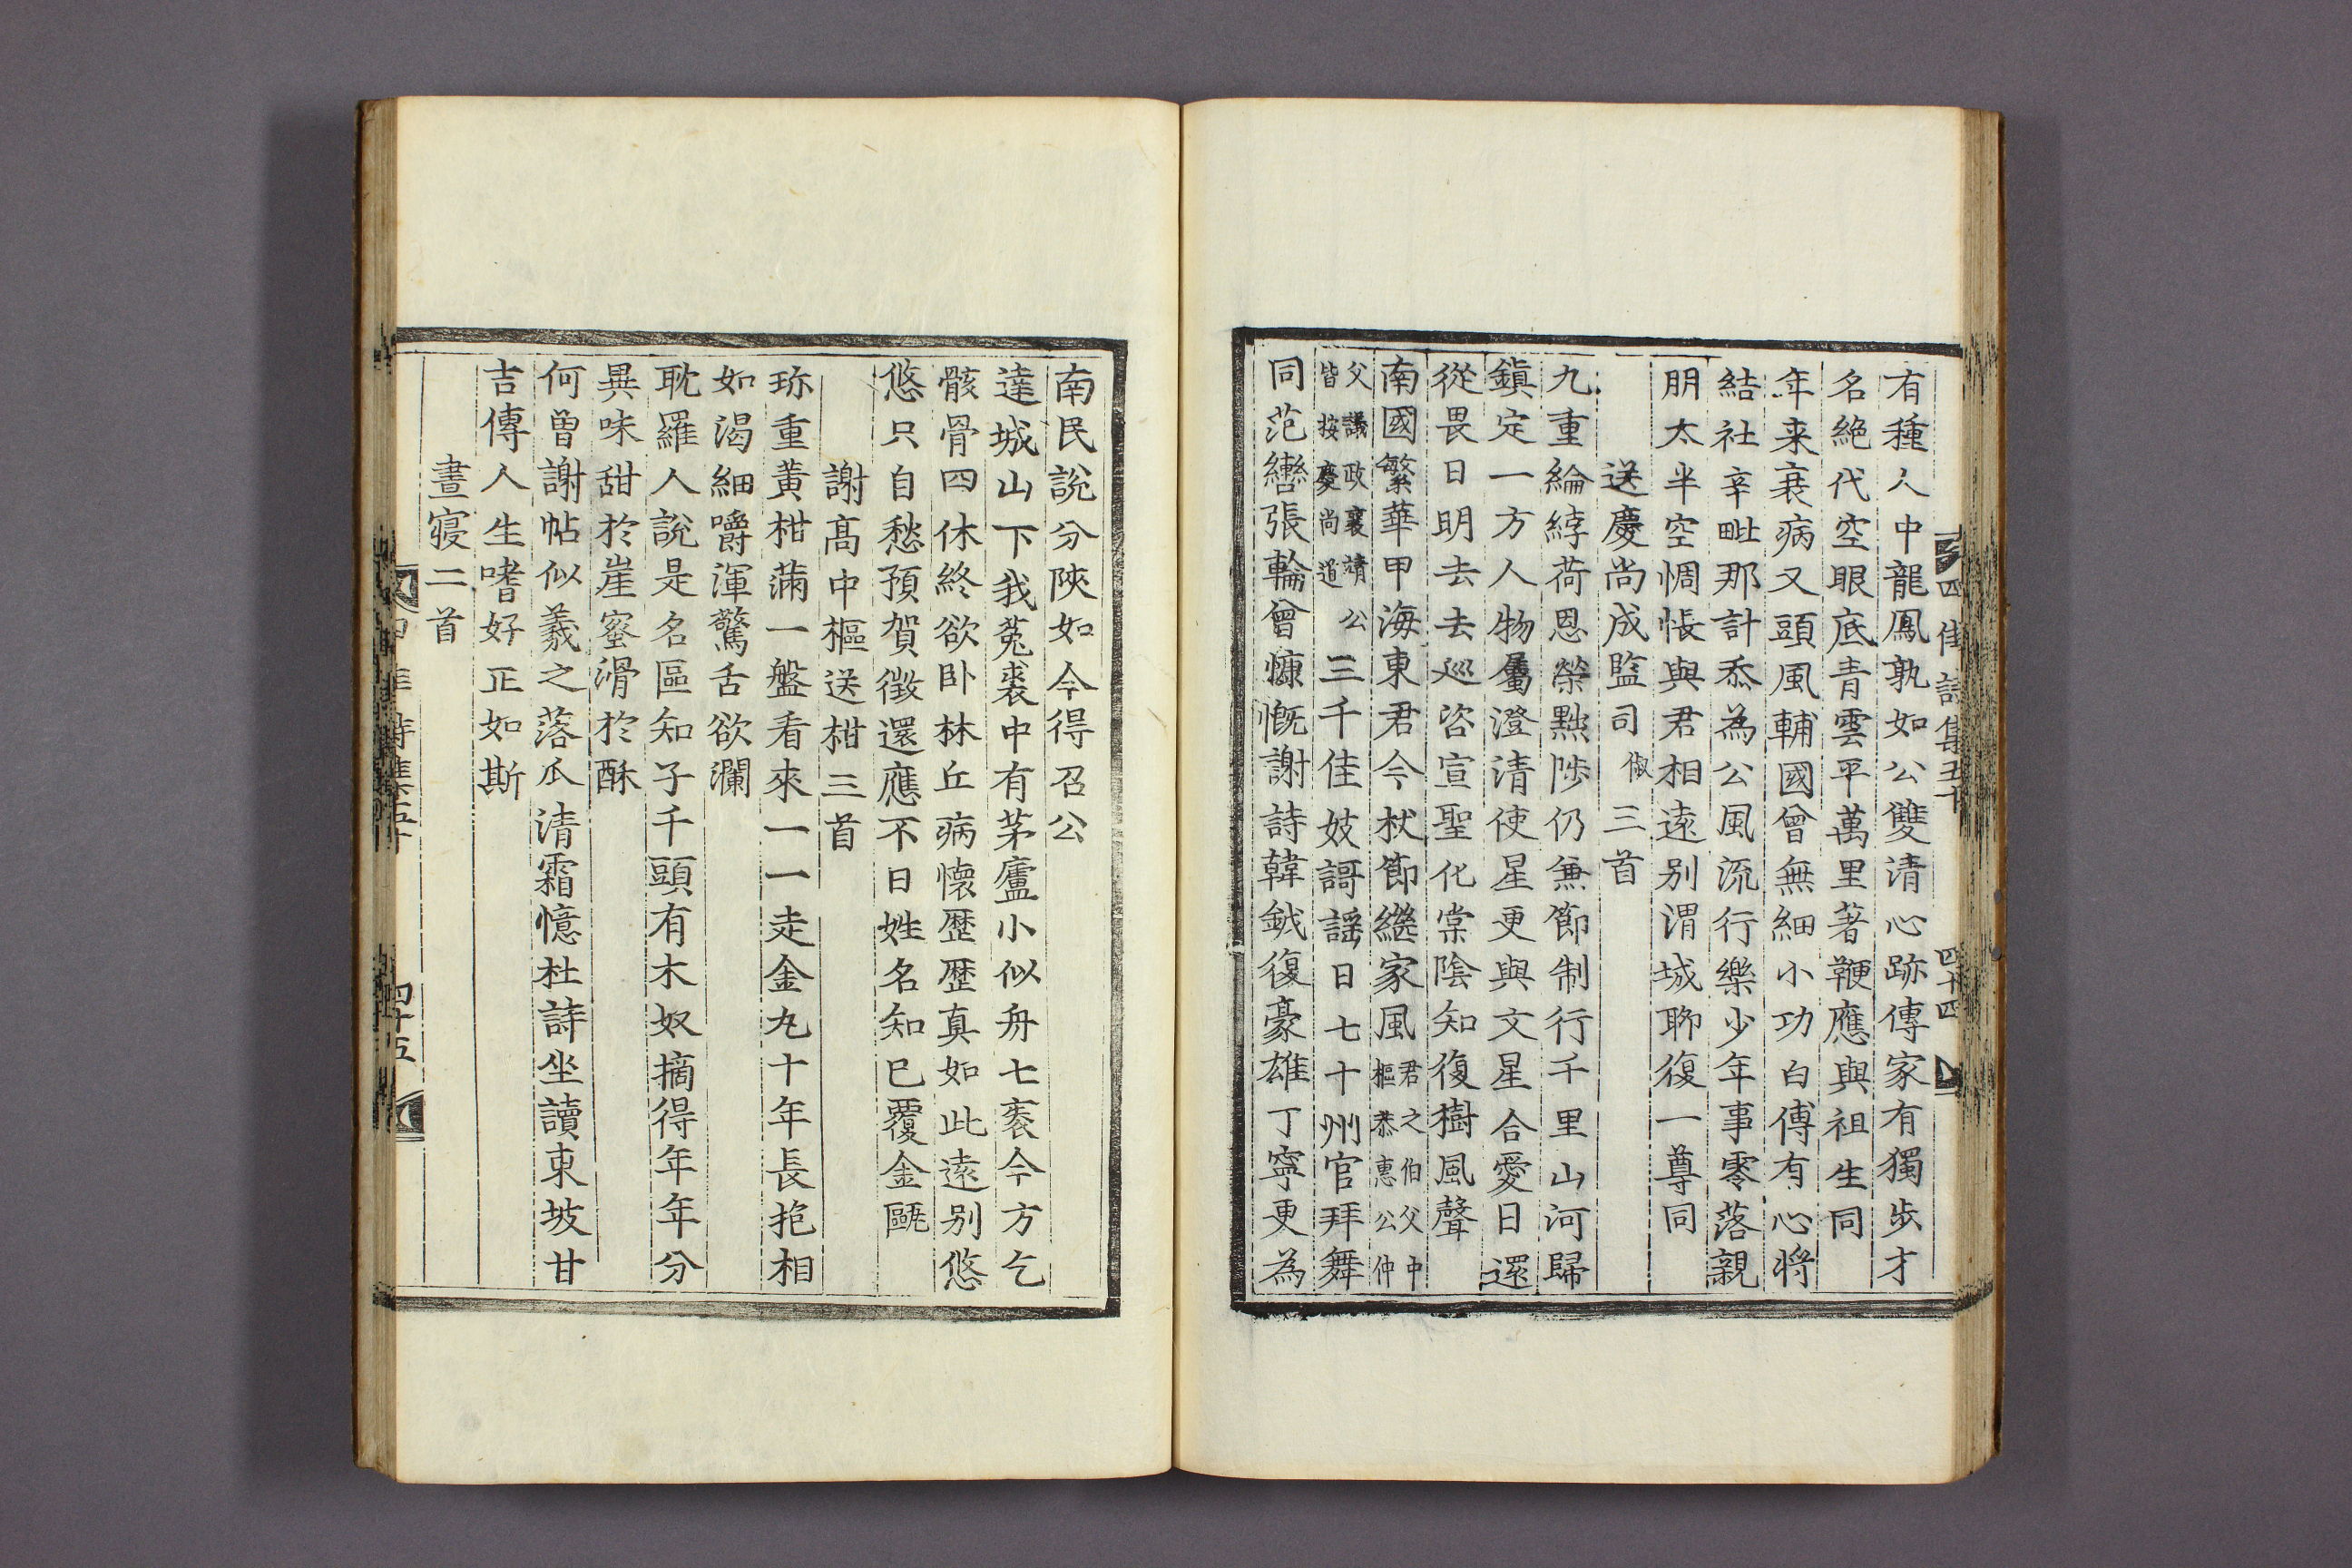 有種人中龍鳳孰如公雙清心跡傳家有獨步才
名絶代空眼底青雲平萬里著鞭應與祖生同
年来衰病又頭風輔國曾無細小功白傅有心將
結社辛毗那計忝為公風流行樂少年事零落親
朋太半空惆悵與君相遠别渭城聊復一尊同
送慶尚成監司俶三首
九重綸綍荷恩榮㸃陟仍兼節制行千里山河歸
鎮定一方人物屬澄清使星更與文星合愛日還
從畏日明去去巡咨宣聖化棠陰知復樹風聲
南國繁華甲海東君今杖節繼家風君之伯父中樞恭惠公仲
父議政襄靖公皆按慶尚道三千佳妓謌謡日七十州官拜舞
同范轡張輪曾慷慨謝詩韓鉞復豪雄丁寧更為
四佳詩集五十
四十四
南民說分陜如今得召公
達城山下我菟裘中有茅廬小似舟七袠今方乞
骸骨四休終欲卧林丘病懷歷歷真如此遠别悠
悠只自愁預賀徴還應不日姓名知已覆金甌
謝髙中樞送柑三首
珎重黃柑滿一盤看來一一走金丸十年長抱相
如渴細嚼渾驚舌欲瀾
耽羅人說是名區知子千頭有木奴摘得年年分
異味甜於崖蜜滑於酥
何曽謝帖似羲之落瓜清霜憶杜詩坐讀東坡甘
吉傳人生嗜好正如斯
晝寢二首
四佳詩集五十
四十五